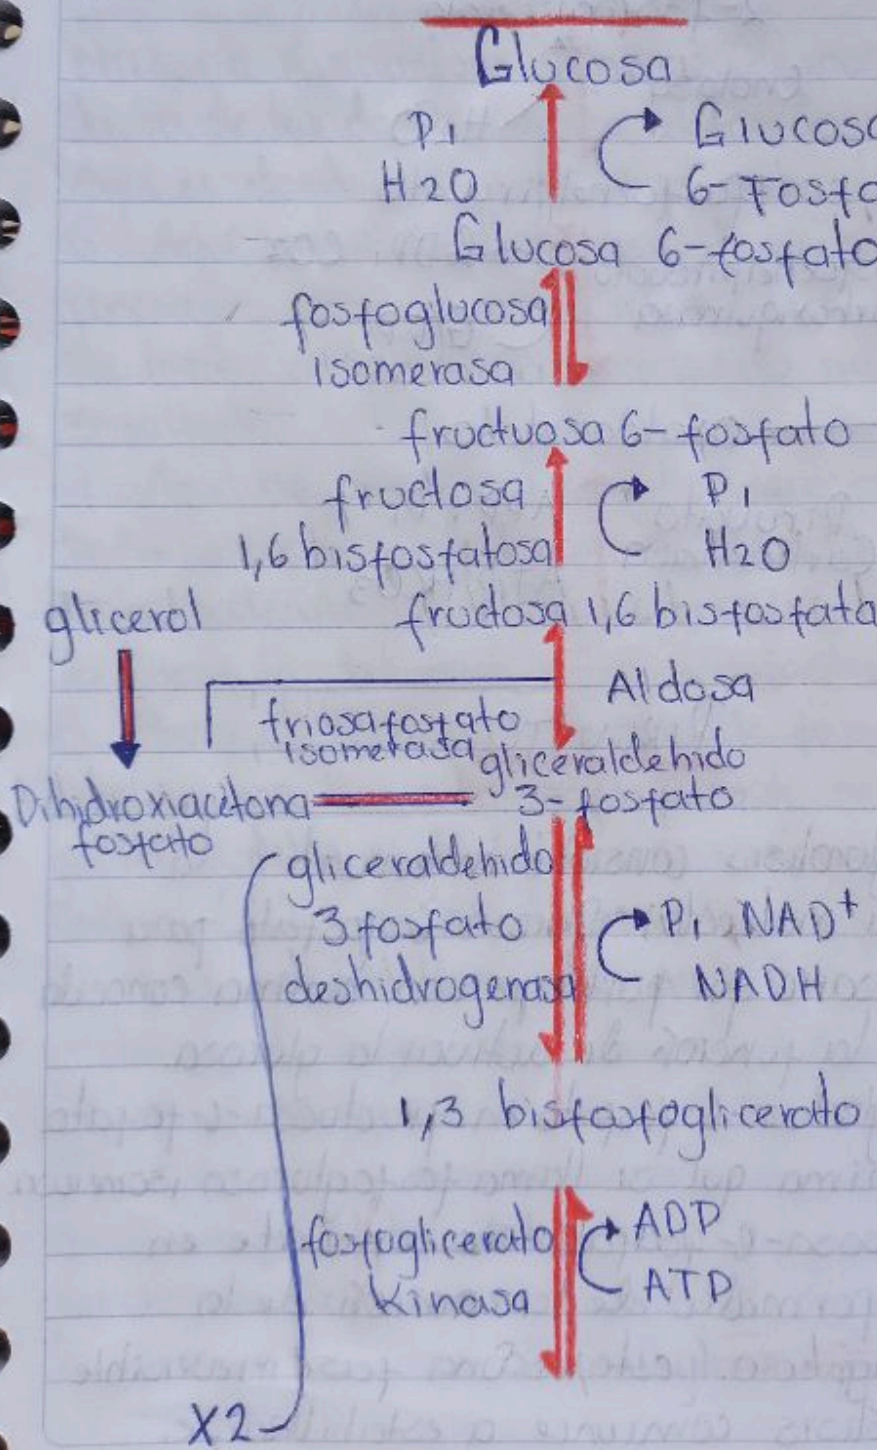 Glucosa
Pi Glucosa
H2O 6-Fosfa
Glucosa 6-fosfato
fosfoglucosa
isomerasa
fructuosa 6-fosfato
fructosa Pi
1,6 bisfosfatosa H2O
glicerol fructosa 1,6 bisfosfata
Aldosa
triosafosfato
isomerasa gliceraldehido
Dihidroxiacetona 3-fosfato
fosfato
gliceraldehido
3 fosfato Pi NAD+
deshidrogenasa NADH
1,3 bisfosfoglicerato
fosfoglicerato ADP
Kinasa ATP
X2